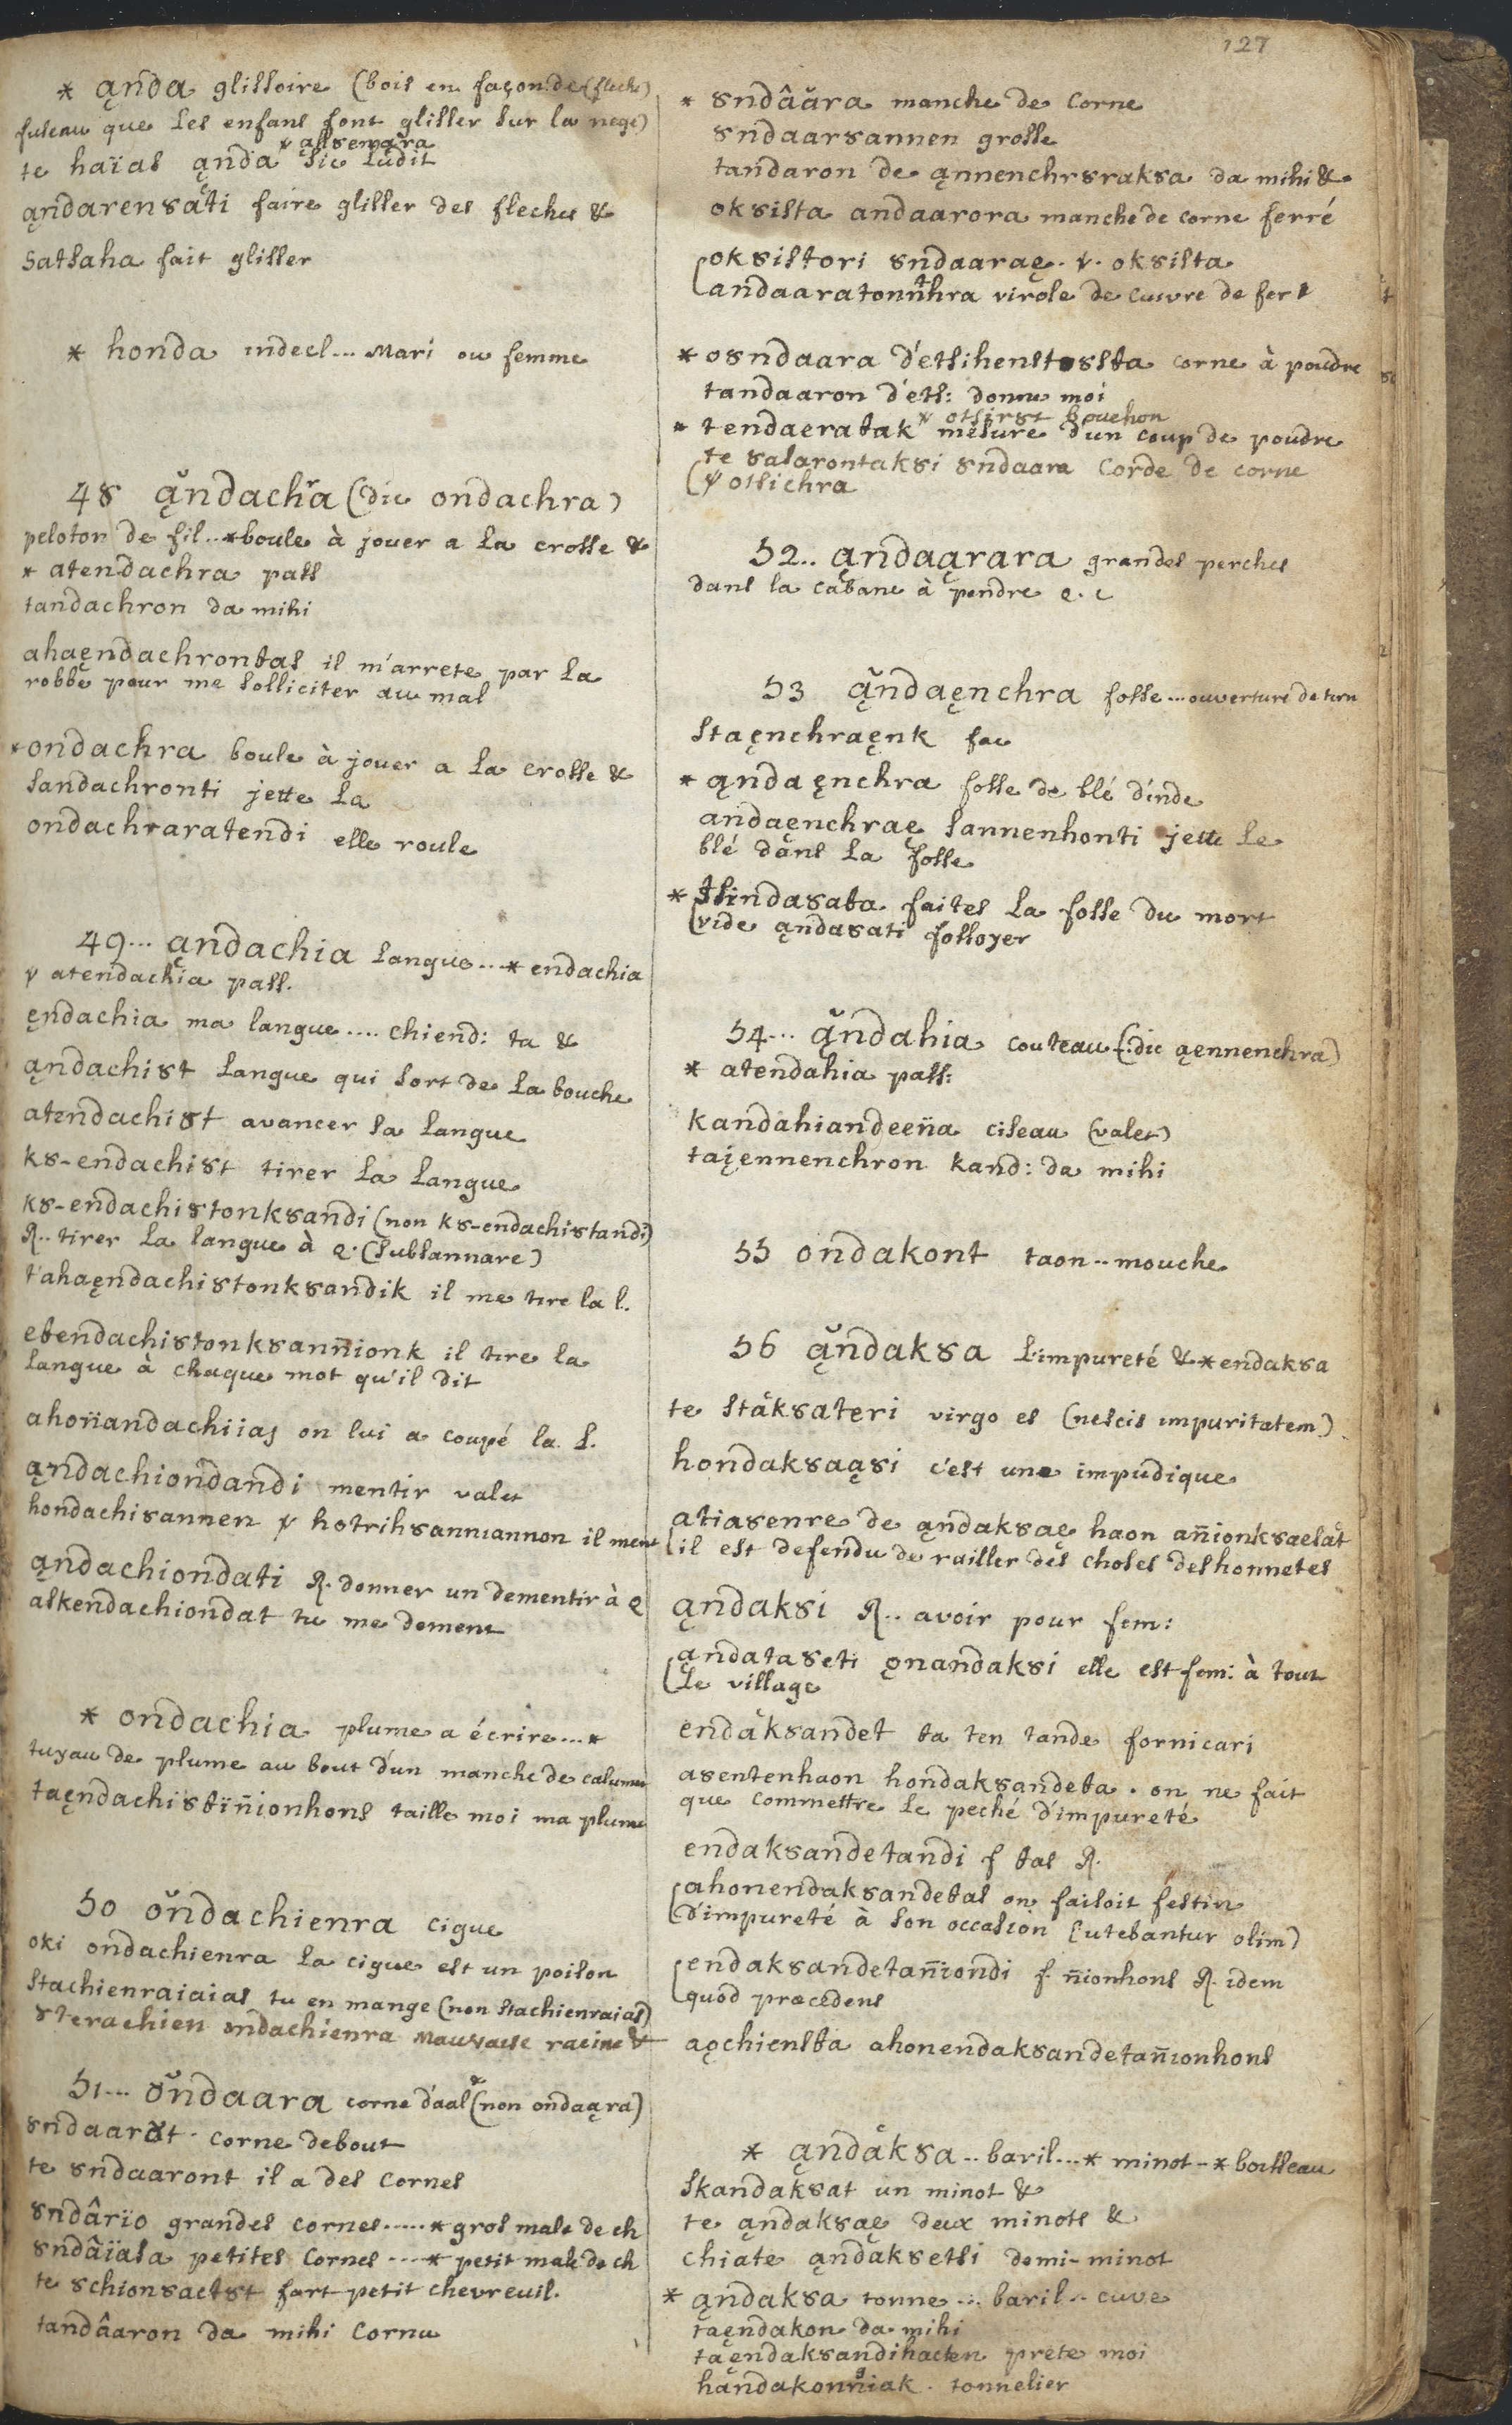 127
* ąnda glissoire (bois en façon de (fleche)
fuseau que les enfans font glisser sur la nege)
te haïas ąnda sic ludit
ąndarensati faire glisser des fleches &
satsaha fait glisser
* honda indecl... Mari ou femme
48 ąndachra (dic ondachra)
peloton de fil..*boule à jouer a la crosse &
* atendachra pass
tandachron da mihi
ahaęndachrontas il m'arrete par la
robbe pour me solliciter au mal
*ondachra boule à jouer a la crosse &
sandachronti jette la
ondachraratendi elle roule
49... ąndachia langue...* endachia
v atendachia pass.
ęndachia ma langue.... chiend: ta &
ąndachi8t langue qui sort de la bouche
atendachi8t avancer sa langue
k8-endachi8t tirer la langue
k8-endachi8tonk8andi (non k8-endachi8tandi)
R.. tirer la langue à q. (subsannare)
t'ahaęndachi8tonk8andik il me tire la l.
etendachi8tonk8annionk il tire la
langue à chaque mot qu'il dit
ahonandachiias on lui a coupé la l.
ąndachiondandi mentir valet
hondachi8annen v hotrih8anniannon il ment
ąndachiondati R. donner un dementir à q
askendachiondat tu me dement
* ondachia plume a écrire...*
tuyau de plume au bout d'un manche de calumet
taęndachi8tiñionhons taille moi ma plume
50 ondachienra cigue
oki ondachienra la cigue est un poison
stachienraiaias tu en mange (non stachienraias)
8terachien ondachienra mauvaise racine &
51... ondaara corne d'aal (non ondaąra)
8ndaar8t. corne debout
te 8ndaaront il a des cornes
8ndârio grandes cornes.....*gros male de ch
8ndâïasa petites cornes ....* petit male de ch
te 8chion8aets8t fort petit chevreuil.
tandâaron da mihi cornu
* 8ndâara manche de corne
8ndaar8annen grosse
tandaron de ąnnenchr8rak8a da mihi &
ok8ista andaarora manche de corne ferré
ok8istori 8ndaaraę. v. ok8ista
andaaratonnthra virole de cuivre de fer &
* o8ndaara d'etsihenst8sta corne à poudre
tandaaron d'ets: donne moi
v otsir8t bouchon
* tendaeratak mesure d'un coup de poudre
te 8asarontak8i 8ndaara Corde de corne
(v otsichra
52.. ąndaąrara grandes perches
dans la cabane à pendre q. c
53 ąndaęnchra fosse...ouverture de terre
staęnchraęnk fac
* ąndaęnchra fosse de blé d'inde
andaęnchraę sannenhonti jette le
blé dans la fosse
* tsinda8ata faites la fosse du mort
(vide ąnda8ati fossoyer
54... ąndahia couteau (dic ąennenchra)
* atendahia pass:
kandahiandeena ciseau (valet)
taiennenchron kand: da mihi
55 ondakont taon..mouche
56 ąndak8a l'impureté & * endak8a
te stak8ateri virgo es (nescis impuritatem)
hondak8aą8i c'est une impudique
atia8enre de ąndak8aę haon añionk8aesat
il est defendu de railler des choses deshonnetes
ąndak8i R.. avoir pour fem:
ąndata8eti ǫnandak8i elle est fem: à tout
le village
endak8andet ta ten tande fornicari
a8entenhaon hondak8andeta. on ne fait
que commettre le peché d'impureté
endak8andetandi f tas R.
ahonendak8andetas on faisoit festin
d'impureté à son occasion (utebantur olim)
endak8andetañiondi f. ñionhons R. idem
quod præcedens
aǫchiensta ahonendak8andetañionhons
* ąndak8a.. baril...* minot-* boisseau
skandak8at un minot &
te ąndak8aę deux minots &
chiate ąndak8etsi demi-minot
* ąndak8a tonne... baril.. cuve
taęndakon da mihi
taęndak8andihaten prete moi
handakonñiak. tonnelier